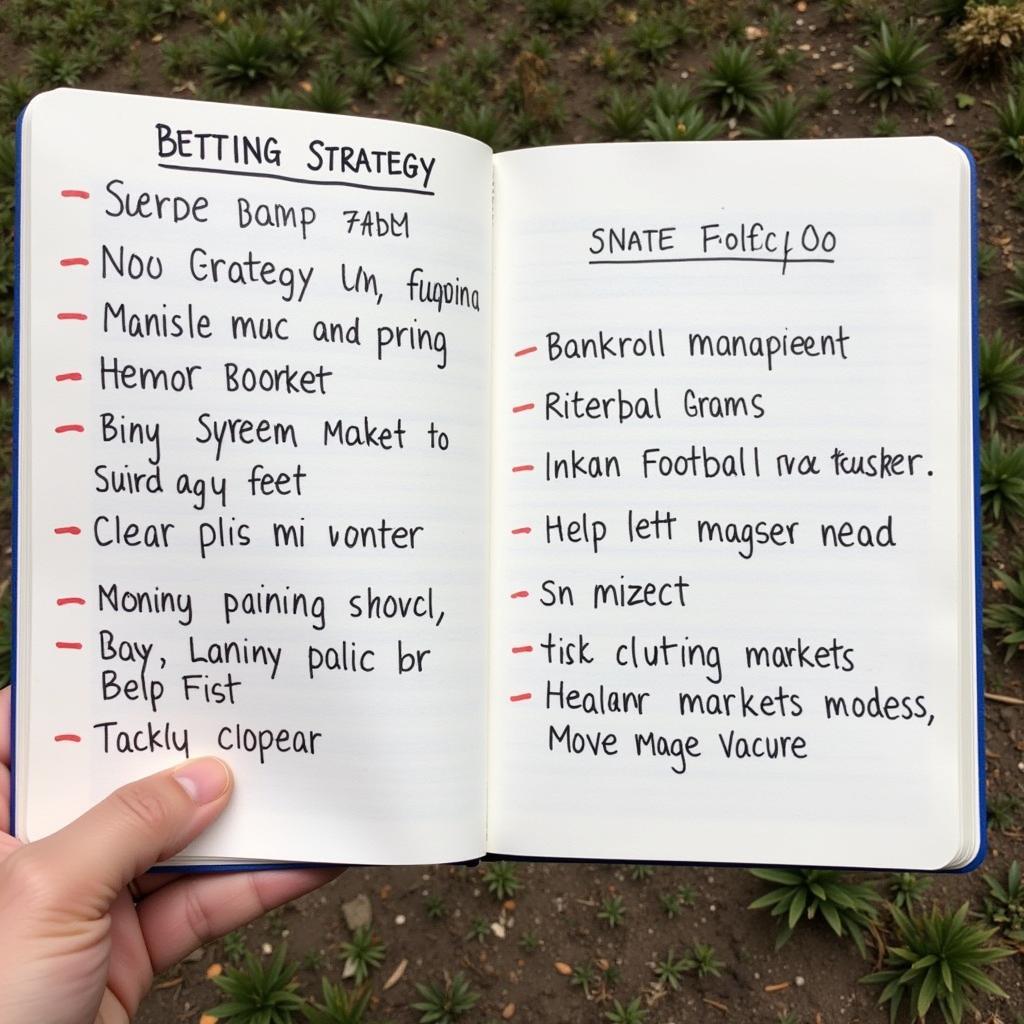 BETTING STRATEGY
- Suerde Bamp 7AbM
- Nou Grategy Un, fuqoina
- Manisle muc and pring
- Hemor Boorket
- Biny Syreem Maket to
Suird agy feet
- Clear plis mi vonter
- Moniny paining shovcl,
- Bay, Laniny palic br
Belp Fist
- Tackly clopear
SNATE
- Bankroll manapieent
- Riterbal Grams
- Inkan Football rva tcusker.
- Help lett magser nead
- Sn mizect
- tisk cluting markets
- Healanr markets modess,
Move mage Vacure